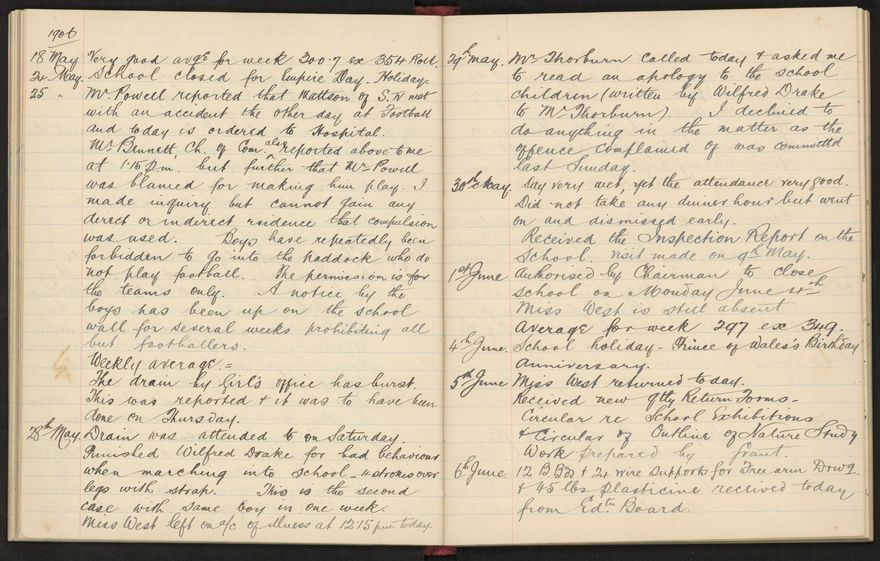 1906
18 May Very good avge for week 300.7 ex 354 Roll.
24 May. School closed for Empire Day. Holiday.
25 " Mr Powell reported that Mattson of S. IV met
with an accident the other day at Football
and today is ordered to Hospital.
Mr Bennett, Ch. of Com. also reported above to me
at 1.15 p.m. but further that Mr Powell
was blamed for making him play. I
made inquiry but cannot gain any
direct or indirect evidence that compulsion
was used. Boys have repeatedly been
forbidden to go into the paddock who do
not play football. The permission is for
the teams only. A notice by the
boys has been up on the school
wall for several weeks prohibiting all
but footballers.
Weekly average =
The drain by Girl's office has burst.
This was reported & it was to have been
done on Thursday.
28th May. Drain was attended to on Saturday.
Punished Wilfred Drake for bad behaviour
when marching into school - 4 strokes over
legs with strap. This is the second
case with same boy in one week.
Miss West left on a/c of illness at 12.15 pm today.
29th May. Mr Thorburn called today & asked me
to read an apology to the school
children (written by Wilfred Drake
to Mr Thorburn). I declined to
do anything in the matter as the
offence complained of was committed
last Sunday.
30th May. Day very wet, yet the attendance very good.
Did not take any dinner hour but went
on and dismissed early.
Received the Inspection Report on the
School. Visit made on 9th May.
1st June Authorised by Chairman to close
school on Monday June 4th
Miss West is still absent
Average for week 297 ex 349.
4th June. School holiday - Prince of Wales's Birthday
Anniversary.
5th June Miss West returned today.
Received new qtly Return Forms -
Circular re School Exhibitions
& Circular of Outline of Nature Study
Work prepared by Grant.
6th June. 12 B Bds & 24 wire supports for Free arm Drwg.
& 45 lbs plasticine received today
from Edtn Board.